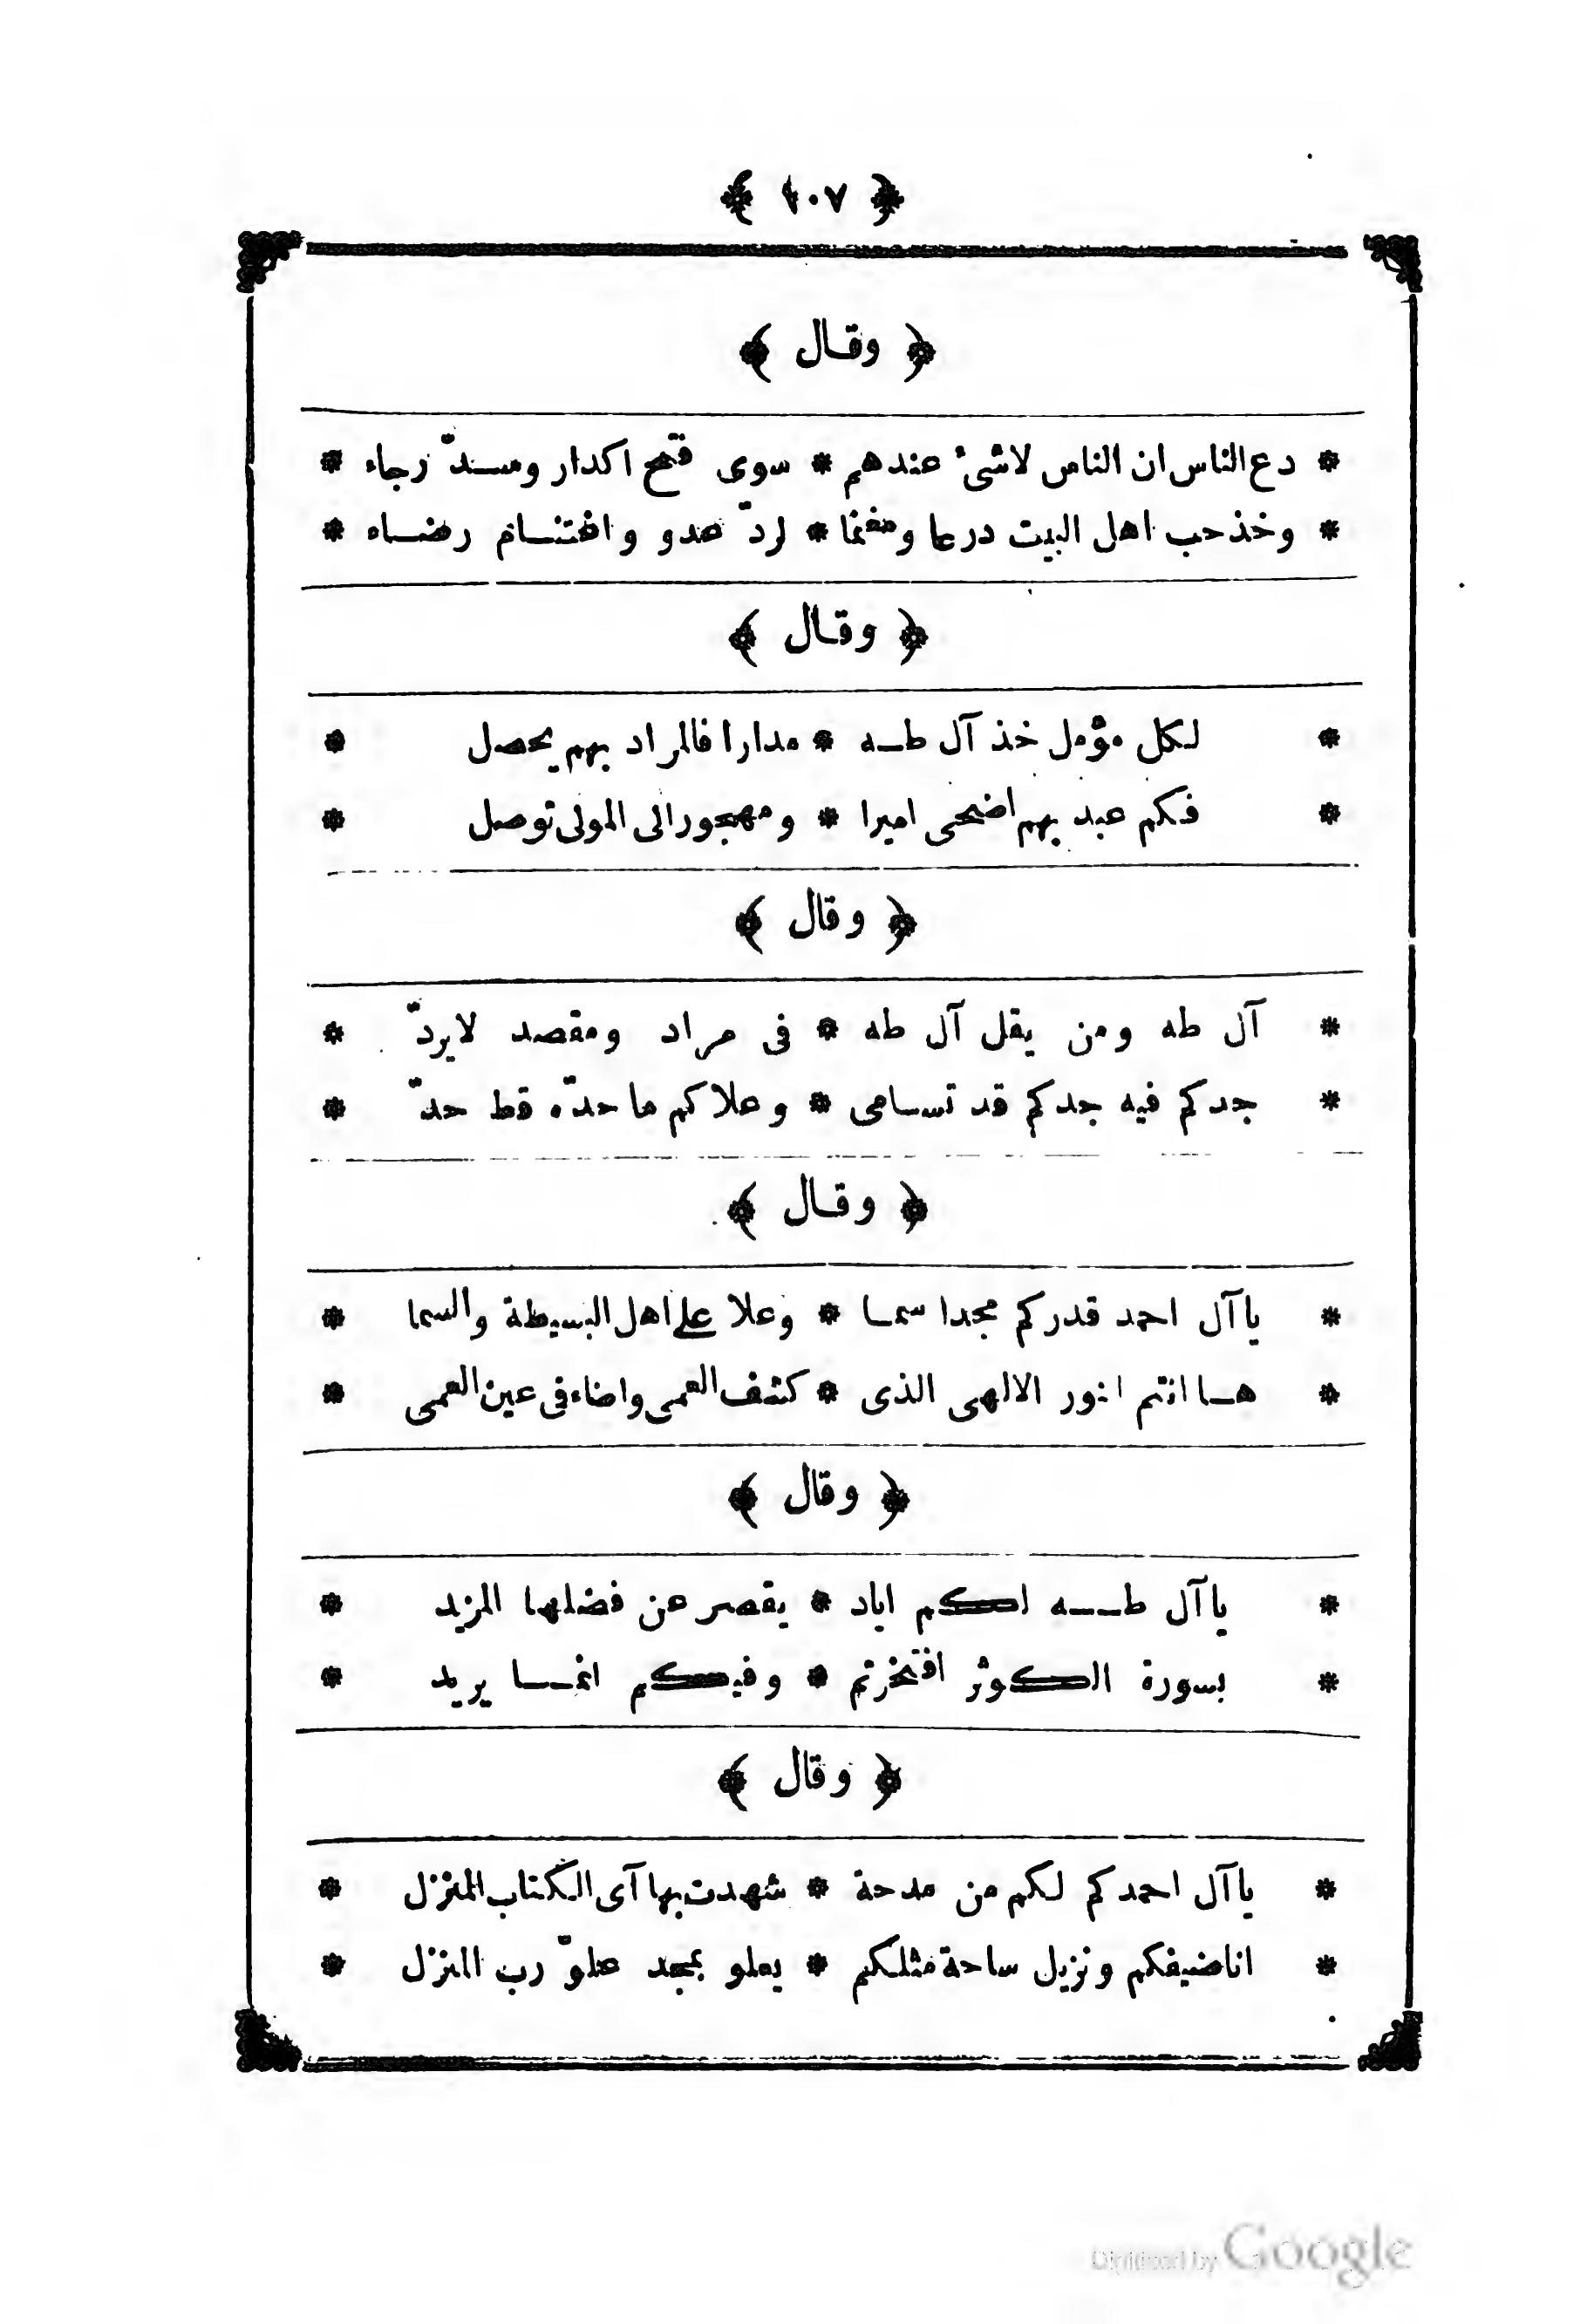 ﴿ ١٠٧ ﴾
﴿ وقال ﴾
* دع الناس ان الناس لاشئ عندهم * سوى فتح اكدار ومسدّ رجاء *
* وخذ حب اهل البيت درعا ومغنما * لردّ عدو واغتنام رضاه *
﴿ وقال ﴾
* لكل مؤمل خذ آل طه * مدارا فالمراد بهم يحصل *
* فكم عبد بهم اضحى اميرا * ومهجور الى المولى توصل *
﴿ وقال ﴾
* آل طه ومن يقل آل طه * فى مراد ومقصد لايردّ *
* جدكم فيه جدكم قد تسامى * وعلاكم ما حدّه قط حدّ *
﴿ وقال ﴾
* يا آل احمد قدركم مجدا سما * وعلا على اهل البسيطة والسما *
* ها انتم النور الالهى الذى * كشف العمى واضاء فى عين العمى *
﴿ وقال ﴾
* يا آل طه لكم اياد * يقصر عن فضلها المزيد *
* بسورة الكوثر افتخرتم * وفيكم انما يريد *
﴿ وقال ﴾
* يا آل احمد كم لكم من مدحة * شهدت بها آى الكتاب المنزل *
* انا ضيفكم ونزيل ساحة مثلكم * يعلو بمجد علوّ رب المنزل *
Digitized by Google